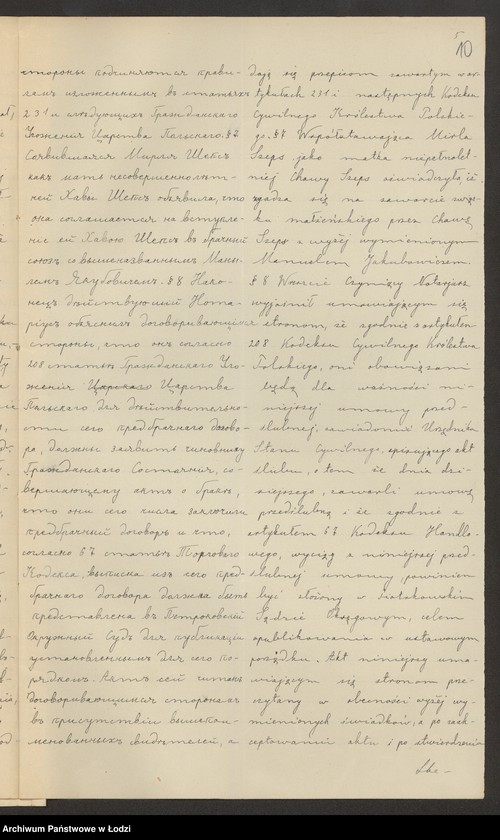 5
10
стороны подчиняются прави-
ламъ изложеннымъ въ статьяхъ
231 и слѣдующихъ Гражданскаго
Уложенія Царства Польскаго. § 7
Сочинившаяся Мирля Шепсъ
какъ мать несовершеннолѣт-
ней Хавы Шепсъ объявила, что
она соглашается на вступле-
ніе ей Хавою Шепсъ въ брачный
союзъ съ вышеназваннымъ Мань-
лемъ Якубовичемъ. § 8 Нако-
нецъ дѣйствующій Нота-
ріусъ объяснилъ договаривающимся
стороны, что онѣ согласно
208 статьѣ Гражданскаго Уло-
женія Царскаго Царства
Польскаго для дѣйствительно-
сти сего предбрачнаго догово-
ра, должны заявить чиновнику
Гражданскаго Состоянія, со-
вершающему актъ о бракѣ,
что они сего числа заключили
предбрачный договоръ и что,
согласно 67 статьѣ Торговаго
Кодекса, выписка изъ сего пред-
брачнаго договора должна быть
представлена въ Петроковскій
Окружный Судъ для публикаціи
установленнымъ для сего по-
рядкомъ. Актъ сей читанъ
договаривающимся сторонамъ
въ присутствіи вышепои-
менованныхъ свидѣтелей, а
dają się przepisom zawartym w ar-
tykułach 231 i następnych Kodeksu
Cywilnego Królestwa Polskie-
go. § 7 Współstawająca Mirla
Szeps, jako matka niepełnolet-
niej Chawy Szeps oświadczyła, iż
zgadza się na zawarcie związ-
ku małżeńskiego przez Chawę
Szeps z wyżej wymienionym
Manuelem Jakubowiczem.
§ 8 Wreszcie Czyniący Notarjusz
wyjaśnił umawiającym się
stronom, że zgodnie z artykułem
208 Kodeksu Cywilnego Królestwa
Polskiego, oni obowiązani
będą dla ważności ni-
niejszej umowy przed-
ślubnej, zawiadomić Urzędnika
Stanu Cywilnego, spisującego akt
ślubu, o tem że dnia dzi-
siejszego, zawarli umowę
przedślubną i że zgodnie z
artykułem 67 Kodeksu Handlo-
wego, wyciąg z niniejszej przed-
ślubnej umowy, powinien
być złożony w Piotrkowskim
Sądzie Okręgowym, celem
opublikowania w ustawowym
porządku. Akt niniejszy uma-
wiającym się stronom prze-
czytany w obecności wyżej wy-
mienionych świadków, a po zaak-
ceptowaniu aktu i po stwierdzeniu
Archiwum Państwowe w Łodzi